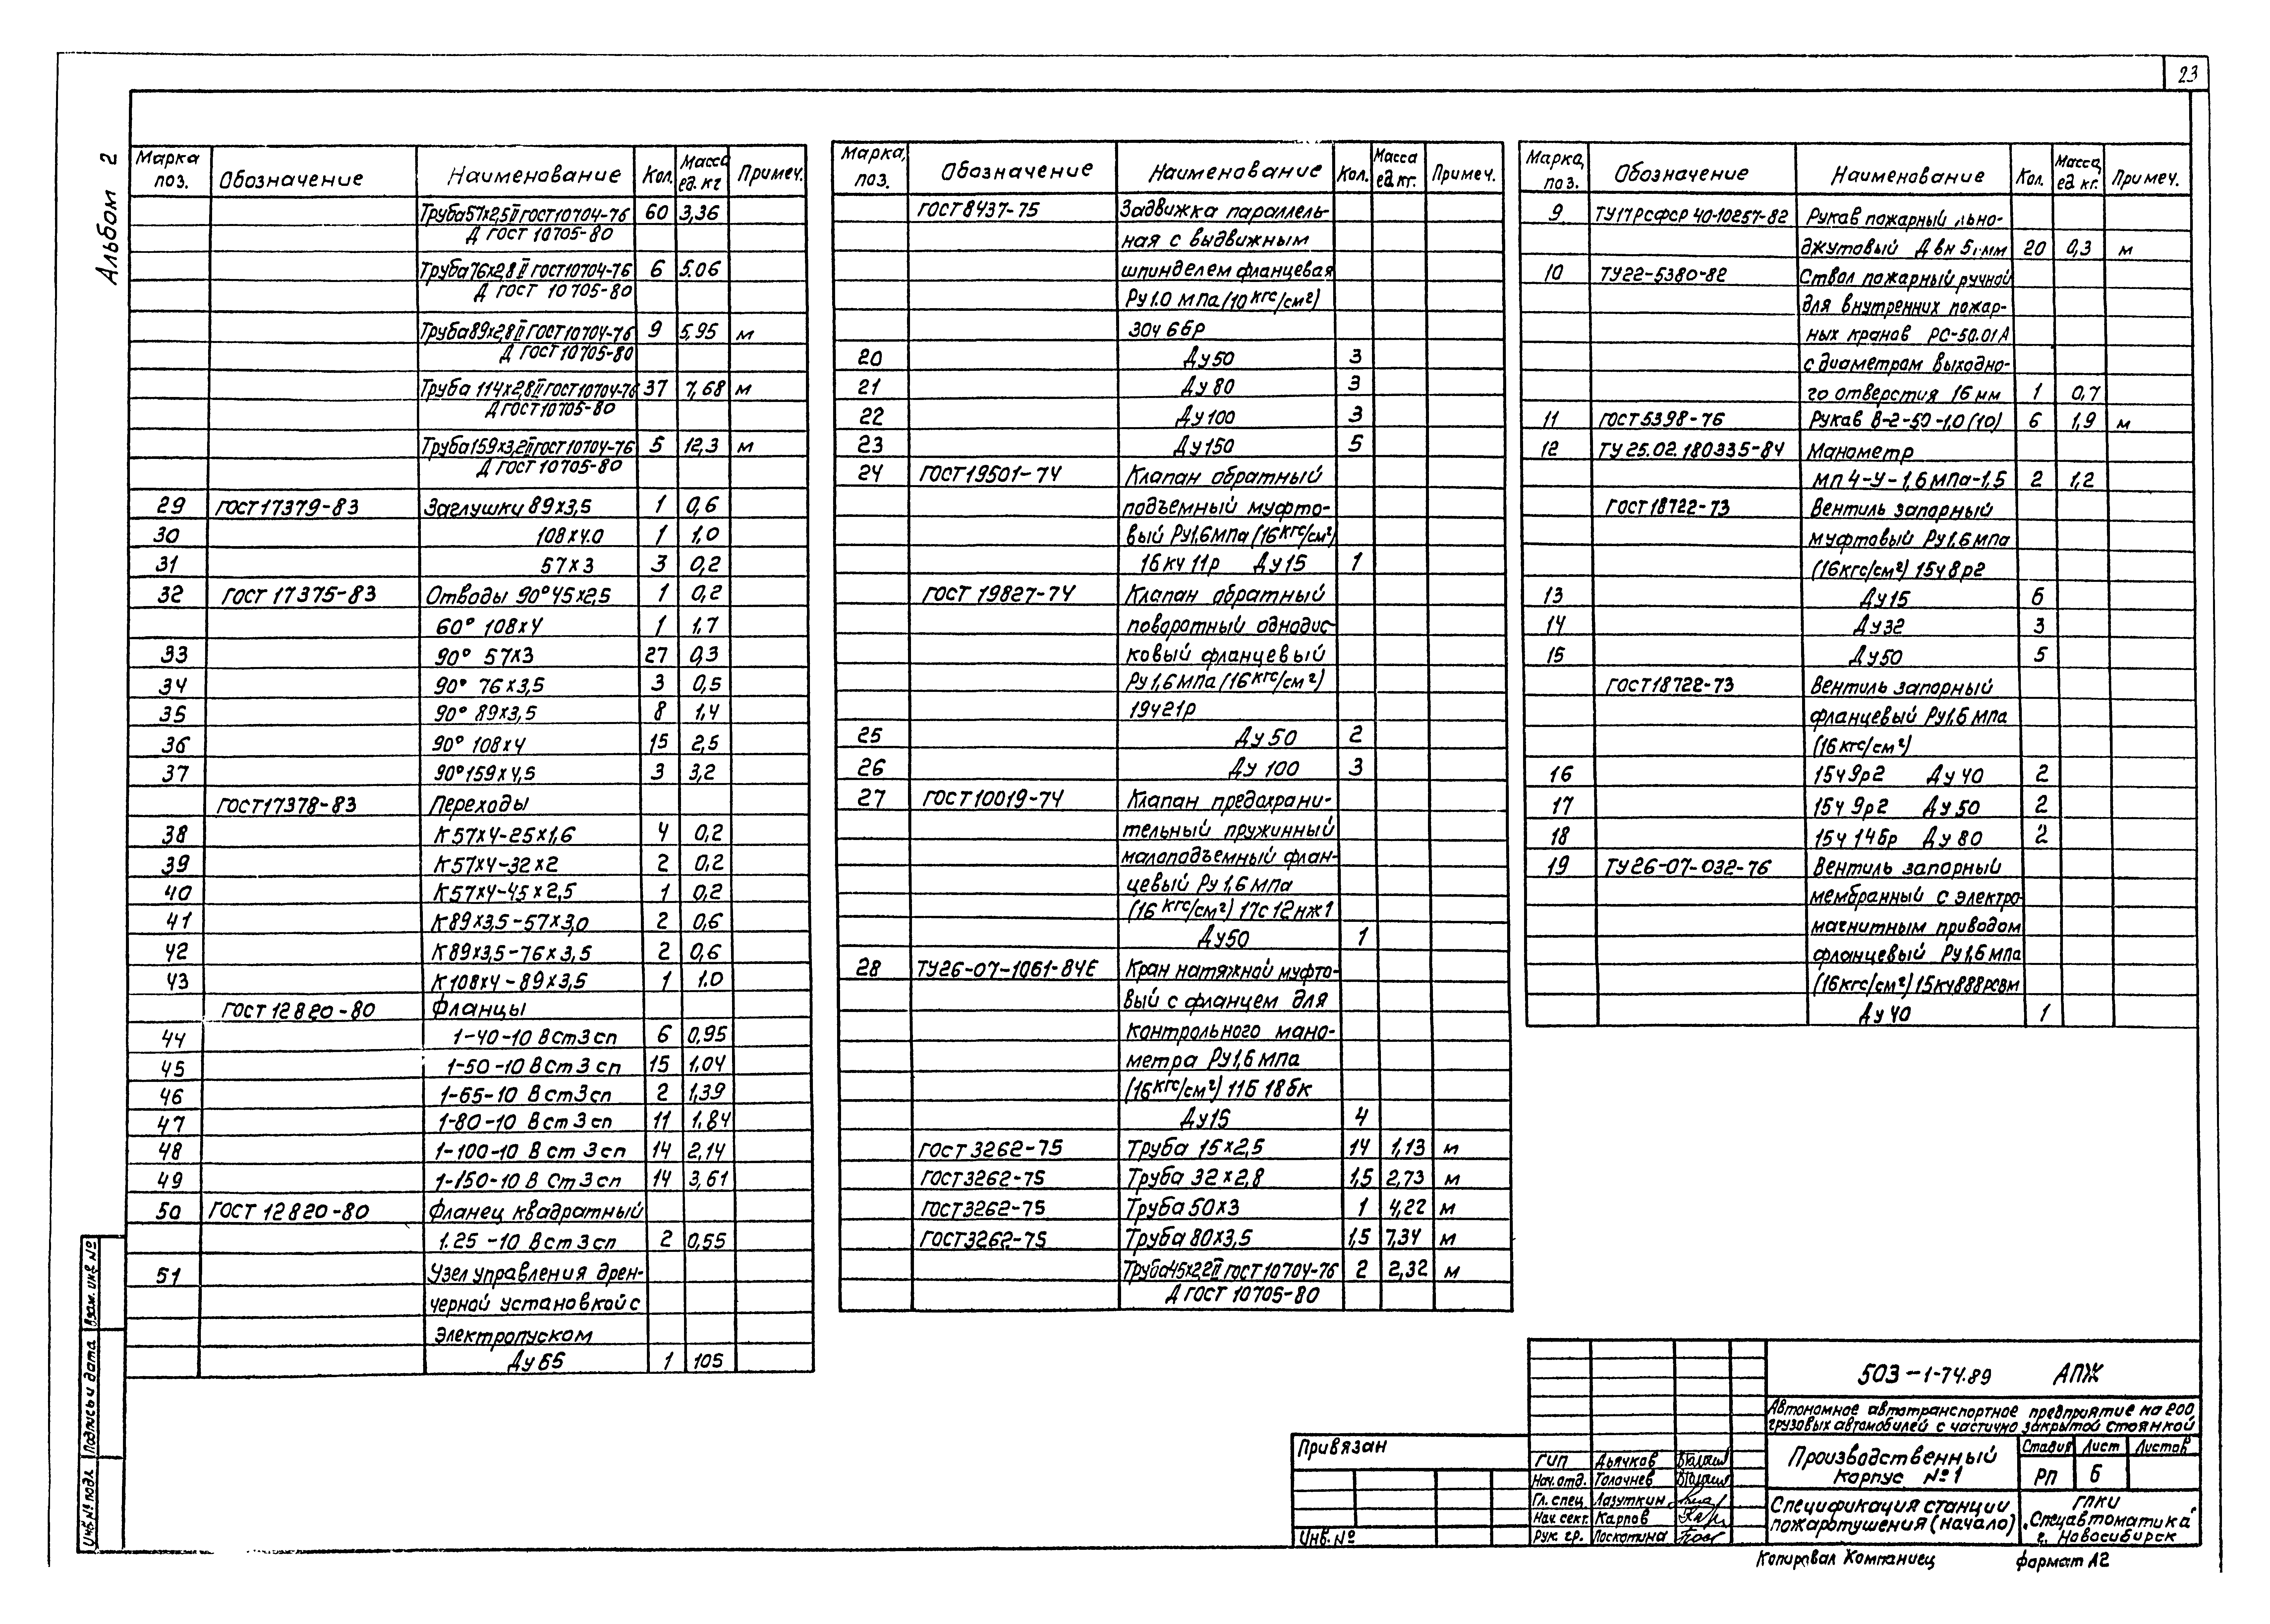 23
Альбом 2
Марка поз. Обозначение Наименование Кол. Масса ед. кг Примеч.
Труба 57х2,5 II ГОСТ 10704-76 60 3,36
Д ГОСТ 10705-80
Труба 76х2,8 II ГОСТ 10704-76 6 5.06
Д ГОСТ 10705-80
Труба 89х2,8 II ГОСТ 10704-76 9 5,95 м
Д ГОСТ 10705-80
Труба 114х2,8 II ГОСТ 10704-76 37 7,68 м
Д ГОСТ 10705-80
Труба 159х3,2 II ГОСТ 10704-76 5 12,3 м
Д ГОСТ 10705-80
29 ГОСТ 17379-83 Заглушки 89х3,5 1 0,6
30 108х4.0 1 1,0
31 57х3 3 0,2
32 ГОСТ 17375-83 Отводы 90° 45х2,5 1 0,2
60° 108х4 1 1,7
33 90° 57х3 27 0,3
34 90° 76х3,5 3 0,5
35 90° 89х3,5 8 1,4
36 90° 108х4 15 2,5
37 90° 159х4,5 3 3,2
ГОСТ 17378-83 Переходы
38 К57х4-25х1,6 4 0,2
39 К57х4-32х2 2 0,2
40 К57х4-45х2,5 1 0,2
41 К89х3,5-57х3,0 2 0,6
42 К89х3,5-76х3,5 2 0,6
43 К108х4-89х3,5 1 1.0
ГОСТ 12820-80 Фланцы
44 1-40-10 В ст 3 сп 6 0,95
45 1-50-10 В ст 3 сп 15 1,04
46 1-65-10 В ст 3 сп 2 1,39
47 1-80-10 В ст 3 сп 11 1.84
48 1-100-10 В ст 3 сп 14 2,14
49 1-150-10 В Ст 3 сп 14 3,61
50 ГОСТ 12820-80 Фланец квадратный
1.25-10 В ст 3 сп 2 0,55
51 Узел управления дрен-
черной установкой с
электропуском
Ду 65 1 105
Марка, поз. Обозначение Наименование Кол. Масса ед кг. Примеч.
ГОСТ 8437-75 Задвижка параллель-
ная с выдвижным
шпинделем фланцевая
Ру 1.0 МПа (10 кгс/см²)
30ч 6бр
20 Ду 50 3
21 Ду 80 3
22 Ду 100 3
23 Ду 150 5
24 ГОСТ 19501-74 Клапан обратный
подъемный муфто-
вый Ру 1,6 МПа (16 кгс/см²)
16 кч 11р Ду 15 1
ГОСТ 19827-74 Клапан обратный
поворотный однодис-
ковый фланцевый
Ру 1,6 МПа (16 кгс/см²)
19ч21р
25 Ду 50 2
26 Ду 100 3
27 ГОСТ 10019-74 Клапан предохрани-
тельный пружинный
малоподъемный флан-
цевый Ру 1,6 МПа
(16 кгс/см²) 17с 12нж1
Ду50 1
28 ТУ26-07-1061-84Е Кран натяжной муфто-
вый с фланцем для
контрольного мано-
метра Ру 1,6 МПа
(16 кгс/см²) 11Б 18бк
Ду 15 4
ГОСТ 3262-75 Труба 15х2,5 14 1,13 м
ГОСТ 3262-75 Труба 32х2,8 1,5 2,73 м
ГОСТ 3262-75 Труба 50х3 1 4,22 м
ГОСТ 3262-75 Труба 80х3,5 1,5 7,34 м
Труба 45х2,2 II ГОСТ 10704-76 2 2,32 м
Д ГОСТ 10705-80
Марка, поз. Обозначение Наименование Кол. Масса, ед кг. Примеч.
9 ТУ17РСФСР 40-10257-82 Рукав пожарный льно-
джутовый Д вн 51 мм 20 0,3 м
10 ТУ22-5380-82 Ствол пожарный ручной
для внутренних пожар-
ных кранов РС-50.01А
с диаметром выходно-
го отверстия 16 мм 1 0,7
11 ГОСТ 5398-76 Рукав В-2-50-1,0 (10) 6 1,9 м
12 ТУ 25.02.180335-84 Манометр
МП 4-У-1,6 МПа-1,5 2 1,2
ГОСТ 18722-73 Вентиль запорный
муфтовый Ру 1.6 МПа
(16кгс/см²) 15ч 8р2
13 Ду 15 6
14 Ду 32 3
15 Ду 50 5
ГОСТ 18722-73 Вентиль запорный
фланцевый Ру 1,6 МПа
(16 кгс/см²)
16 15ч 9р2 Ду 40 2
17 15ч 9р2 Ду 50 2
18 15ч 14бр Ду 80 2
19 ТУ26-07-032-76 Вентиль запорный
мембранный с электро-
магнитным приводом
фланцевый Ру 1,6 МПа
(16кгс/см²) 15кч888рсвм
Ду 40 1
503-1-74.89 АПЖ
Автономное автотранспортное предприятие на 200
грузовых автомобилей с частично закрытой стоянкой
Производственный
корпус №1
Стадия Лист Листов
РП 6
Спецификация станции
пожаротушения (начало)
ГПКИ
"Спецавтоматика"
г. Новосибирск
ГИП Дьячков
Нач. отд. Толочнев
Гл. спец. Лазуткин
Нач. сект. Карпов
Рук. гр. Лоскотина
Привязан
Инв. №
Взам. инв №
Подпись и дата
Инв № подл.
Копировал Компаниец формат А2